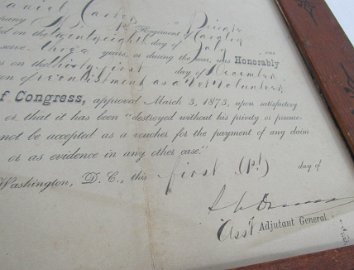 Regiment of
on the twenty eighth day of July
serve three years, or during the war, was Honorably
on the thirty first day of December
tion of reenlistment as a Vet Volunteer
of Congress, approved March 3, 1873, upon satisfactory
or that it has been "destroyed without his privity or procure-
not be accepted as a voucher for the payment of any claim
or as evidence in any other case."
Washington, D. C., this first (1st) day of
Asst Adjutant General.